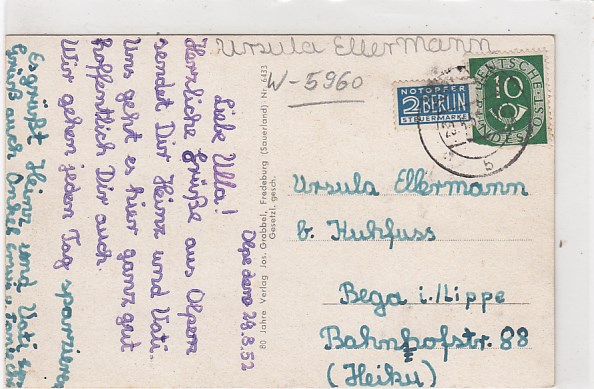 Ursula Ellermann
W-5960
Olpe den 28.3.52
Liebe Ulla!
Herrliche Grüße aus Olpe
sendet Dir Heinz und Usti.
Uns geht es hier ganz gut
hoffentlich Dir auch.
Wir gehen jeden Tag spazieren
Es grüßt Heinz und Usti
Grüß auch Onkel
80 Jahre Verlag Jos. Grobbel, Fredeburg (Sauerland) Nr. 6433
Gesetzl. gesch.
NOTOPFER
2 BERLIN
STEUERMARKE
DEUTSCHE POST
10
BUNDESPOST
b
Ursula Ellermann
b. Kuhfuss
Bega i./Lippe
Bahnhofstr. 88
(Heiku)